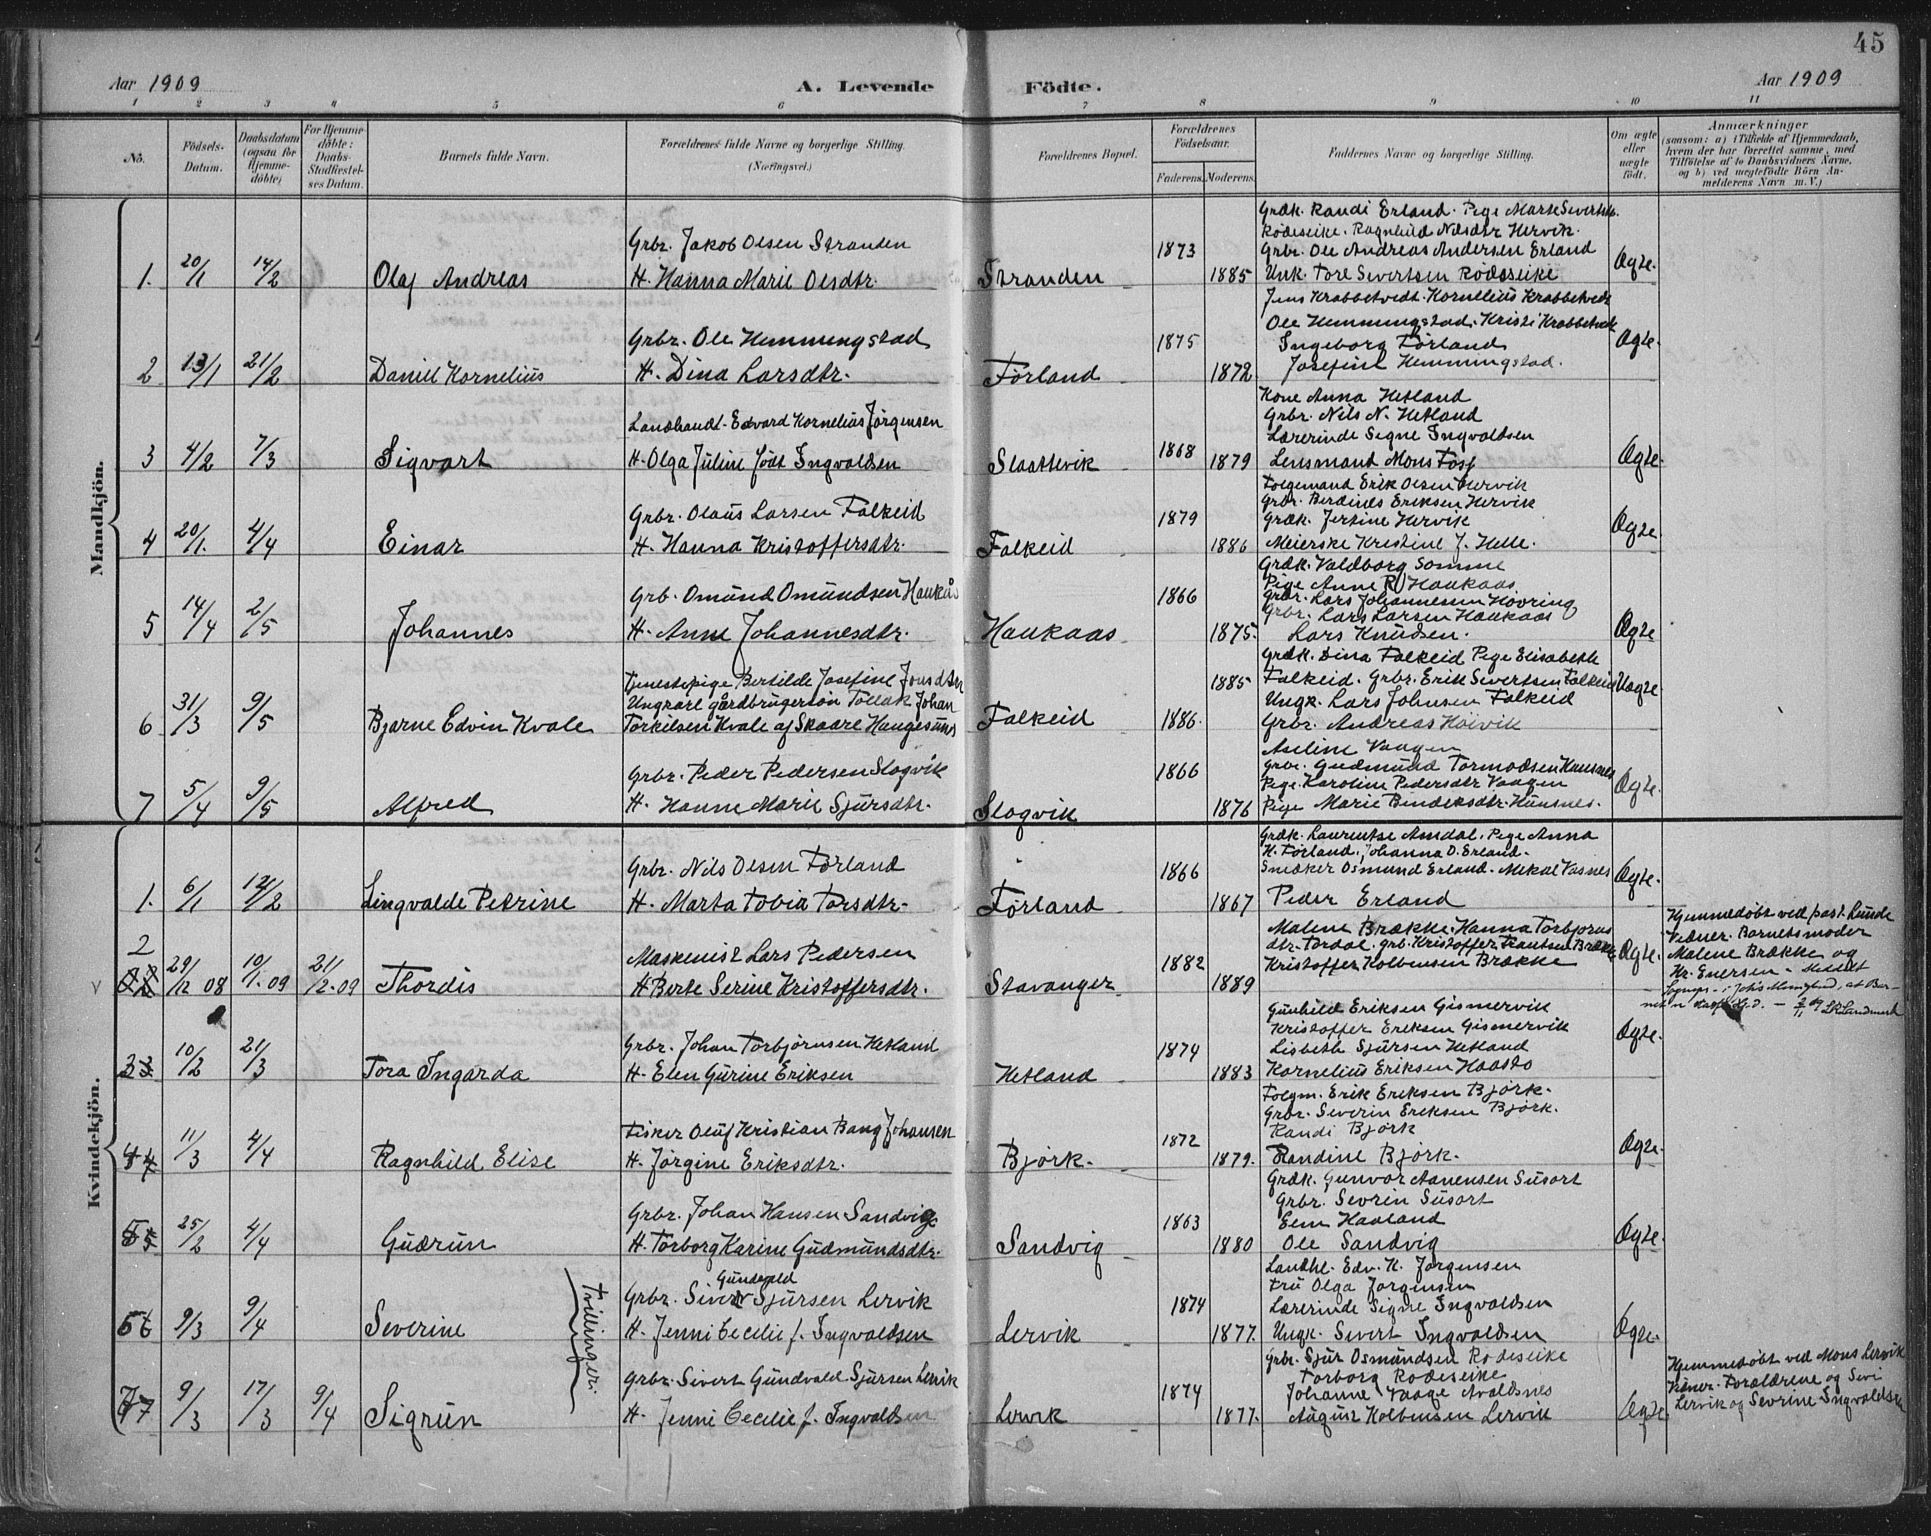 45
Aar 1909
A. Levende Födte.
Aar 1909
1 2 3 4 5 6 7 8 9 10 11
No.
Födsels-Datum.
Daabsdatum (ogsaa for Hjemme-döbte)
For Hjemme-döbte: Daabs-Stadfæstel-ses Datum.
Barnets fulde Navn.
Forældrenes fulde Navne og borgerlige Stilling.
(Næringsvei.)
Forældrenes Bopæl.
Forældrenes Födselsaar.
Faderens. Moderens.
Faddernes Navne og borgerlige Stilling.
Om ægte eller uægte födt.
Anmærkninger
(saasom: a) i Tilfælde af Hjemmedaab, hvem der har forrettet samme, med Tilföielse af to Daabsvidners Navne, og b) ved uægtefödte Börn An-melderens Navn m. V.)
Mandkjön.
Grdk. Randi Erland. Pige Marte Sivertsdtr.
Rödeseike. Ragnhild Nilsdtr Hervik.
Grbr. Jakob Olsen Stranden
1873
Grbr. Ole Andreas Andersen Erland
1. 20/1 14/2 Olaf Andreas
H. Hanna Marie Olsdtr.
Stranden
1885
Unk. Tore Sivertsen Rödeseike
Ægte.
Jens Krabbetvedt. Kornelius Krabbetvedt
Grbr. Ole Hemmingstad
1875
Ole Hemmingstad. Kristi Krabbetvedt
Ingeborg Førland
2 13/1 21/2 Daniel Kornelius
H. Dina Larsdtr.
Førland
1872
Josefine Hemmingstad.
Ægte.
Kone Anna Hetland
Landhandl. Edvard Kornelius Jørgensen
Grbr. Nils N. Hetland
1868
Lærerinde Signe Ingvaldsen
3 4/2 7/3 Sigvart
H. Olga Juline født Ingvaldsen
Slaattevik
1879
Lensmand Mons Foss
Ægte.
Folgemand Erik Olsen Hervik
Grbr. Berdines Eriksen Hervik
Grbr. Olaus Larsen Falkeid
1879
Grdk. Jertine Hervik
4 20/1. 4/4 Einar
H. Hanna Kristoffersdtr.
Falkeid
1886
Meierske Kristine J. Helle.
Ægte.
Grdk. Valdborg Somme
Pige Anne R. Haukaas
Grb. Omund Omundsen Haukås
1866
Grbr. Lars Johannessen Hovring
Grbr. Lars Larsen Haukaas
5 14/4 2/5 Johannes
H. Anne Johannesdtr.
Haukaas
1875.
Lars Knudsen.
Ægte
Grdk. Dina Falkeid Pige Elisabeth
Tjenestepige Bertilde Josefine Jonsdtr
1885
Falkeid. Grbr. Erik Sivertsen Falkeid
Uægte.
Ungkarl gårdbrugersøn Tollak Johan
Ungk. Lars Johnsen Falkeid
6 31/3 9/5 Bjarne Edvin Kvale
Torkilsen Kvale af Skaare Haugesund
Falkeid
1886.
Grbr. Andreas Høivik
Aseline Vaagen
Grbr. Peder Pedersen Slogvik
1866
Grbr. Gudmund Tormodsen Hausnes
Pige Karoline Pedersdtr Vaagen
7 5/4 9/5 Alfred
H. Hanne Marie Sjursdtr.
Slogvik
1876
Pige Marie Bendeksdtr. Hunsnes.
Ægte.
Kvindekjön.
Grdk. Laurentse Amdal. Pige Anna
H. Førland. Johanna O. Erland.
Grbr. Nils Olsen Førland
1866
Snedker Osmund Erland. Mikal Vasnes
1. 6/1 14/2 Lingvalde Petrine
H. Marta Tobia Torsdtr.
Førland
1867
Peder Erland
Ægte.
2
Maskenist Lars Pedersen
1882
Malene Brække. Hanna Torbjørns
dtr. Grbr. Kristoffer Knutsen Brække
29/12 08 10/1. 09 21/2. 09 Thordis
H Berte Serine Kristoffersdtr.
Stavanger
1889
Kristoffer Kolbensen Brække
Ægte.
Hjemmedøbt ved past. Lunde
Vidner: Barnetsmoder
Malene Brække og
Kr. Enersen
Gunhild Eriksen Gismervik
Kristoffer Eriksen Gismervik
Grbr. Johan Torbjørnsen Hetland
1874
Lisbeth Sjursen Hetland
3 10/2 21/3 Tora Ingarda
H. Elen Gurine Eriksen
Hetland
1883
Kornelius Eriksen Haasto
Ægte.
Folgm. Erik Eriksen Bjørk.
Grbr. Severin Eriksen Bjørk.
Fisker Oluf Kristian Bang Johansen
1872
Randi Bjørk
4 11/3 4/4 Ragnhild Elise
H. Jørgine Eriksdtr.
Bjørk.
1879.
Randine Bjørk.
Ægte.
Grdk. Gunvor Aanensen Susort
Grbr. Johan Hansen Sandvig.
1863
Grbr. Sevrin Susort
Elen Haaland
5 25/2 4/4 Gudrun
H. Torborg Karine Gudmundsdtr.
Sandvig
1880
Ole Sandvig
Ægte.
Tvillinger:
Landhl. Edv. K. Jørgensen
Fru Olga Jørgensen
Gundvald
Grbr. Sivert Sjursen Lervik
1874
Lærerinde Signe Ingvaldsen
6 9/3 9/4 Severine
H. Jenni Cecilie f. Ingvaldsen
Lervik
1877.
Ungk. Sivert Ingvaldsen
Ægte.
Grbr. Sjur Osmundsen Rødeseike
Torborg Rødeseike
Grbr. Sivert Gundvald Sjursen Lervik
1874
Johanne Vaage Avaldsnes
7 9/3 17/3 9/4 Sigrun
H. Jenni Cecilie f. Ingvaldsen
Lervik
1877.
August Kolbensen Lervik
Ægte
Hjemmedøbt ved Mons Lervik
Vidner: Forældrene og Sivi
Lervik og Sevrine Ingvaldsen